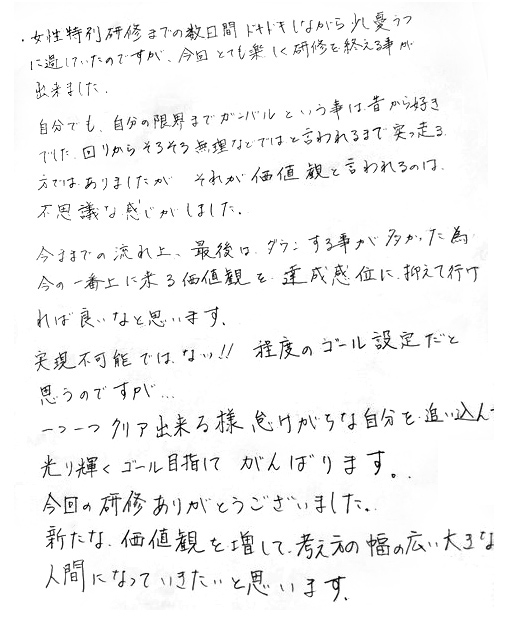 ・女性特別研修までの数日間ドキドキしながら少し憂うつ
に過していたのですが、今回とても楽しく研修を終える事が
出来ました。
自分でも、自分の限界までガンバルという事は昔から好き
でした。回りからそろそろ無理なとでは と言われるまで突っ走る
方ではありましたが それが価値観と言われるのは、
不思議な感じがしました。
今までの流れ上、最後は、ダウンする事が多かった為
今の一番上に来る価値観を、達成感位に抑えて行け
れば良いなと思います。
実現不可能ではない!! 程度のゴール設定だと
思うのですが…
一つ一つクリア出来る様 怠けがちな自分を追い込んで
光り輝くゴール目指して がんばります。
今回の研修ありがとうございました。
新たな価値観を増して、考え方の幅の広い大きな
人間になっていきたいと思います。